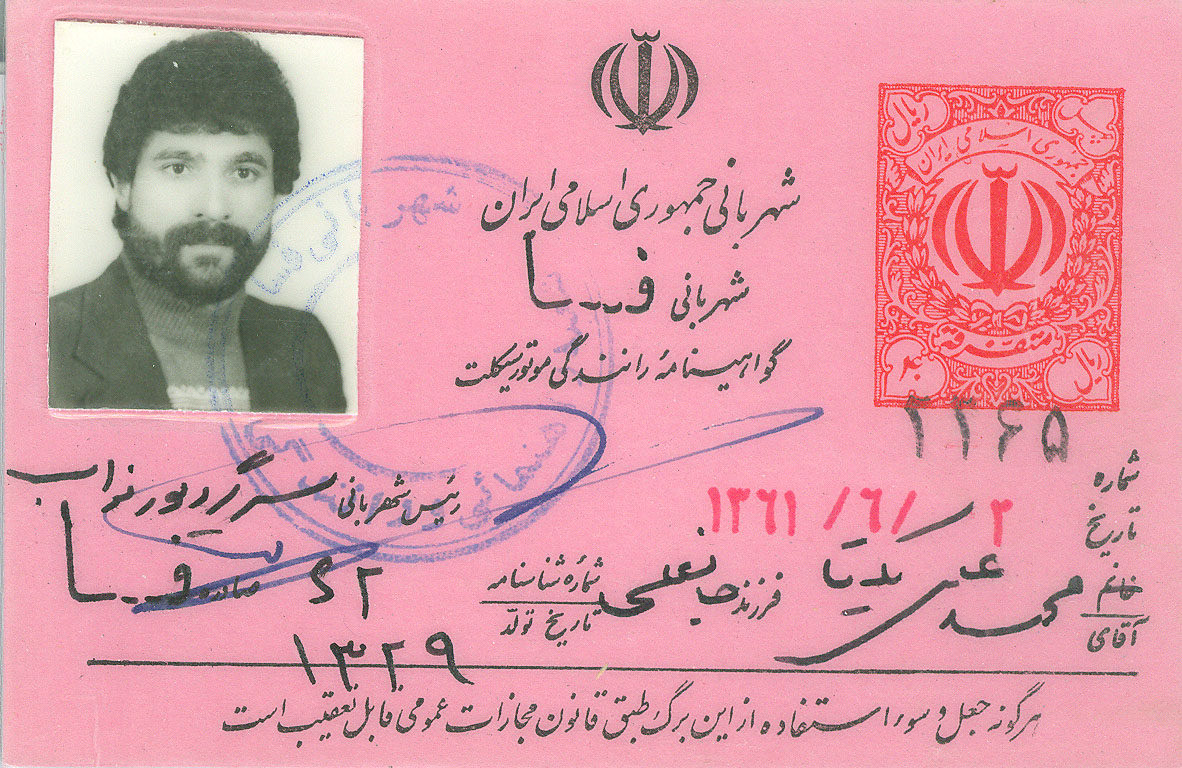 شهربانی جمهوری اسلامی ایران
شهربانی فسا
گواهینامهٔ رانندگی موتورسیکلت
جمهوری اسلامی ایران
ریال
متفرقه
ریال
شهربانی فسا
راهنمائی و رانندگی
شماره ۲۳۶۵
تاریخ ۱۳۶۱/۶/۲
رئیس شهربانی سرگرد پورنواب
خانم
آقای محمد علی فرزند جانعلی شمارهٔ شناسنامه ۶۲ صادره فسا
تاریخ تولد ۱۳۲۹
هرگونه جعل و سوء استفاده از این برگ طبق قانون مجازات عمومی قابل تعقیب است